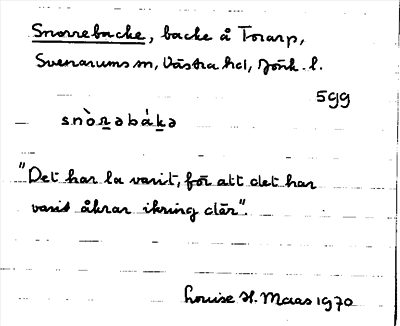 Snorrebacke, backe å Torarp,
Svenarums sn, Västra hd, Jönk. l.
599
"Det har la varit, för att det har
varit åkrar ikring där".
Louise H. Maas 1970